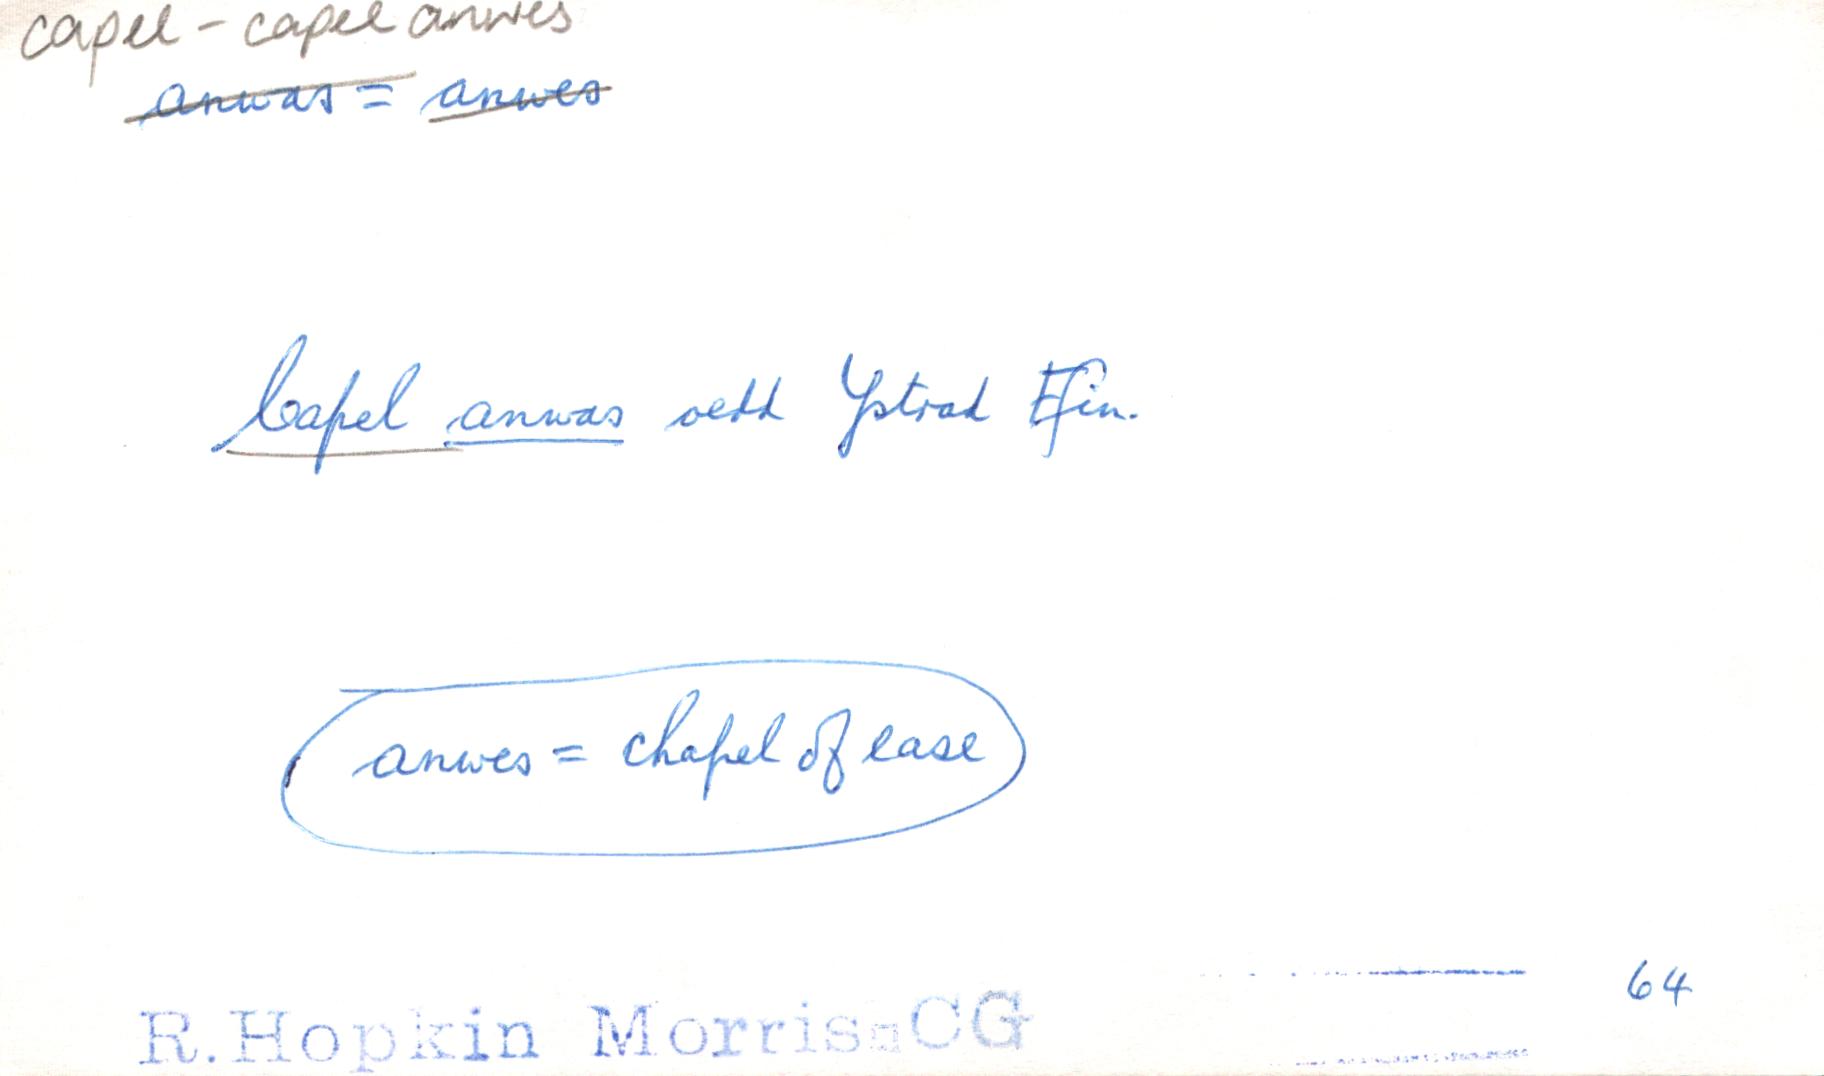 capel - capel anwes
anwas = anwes
Capel anwas oedd Ystrad Ffin.
anwes = chapel of ease
64
R.Hopkin Morris-CG